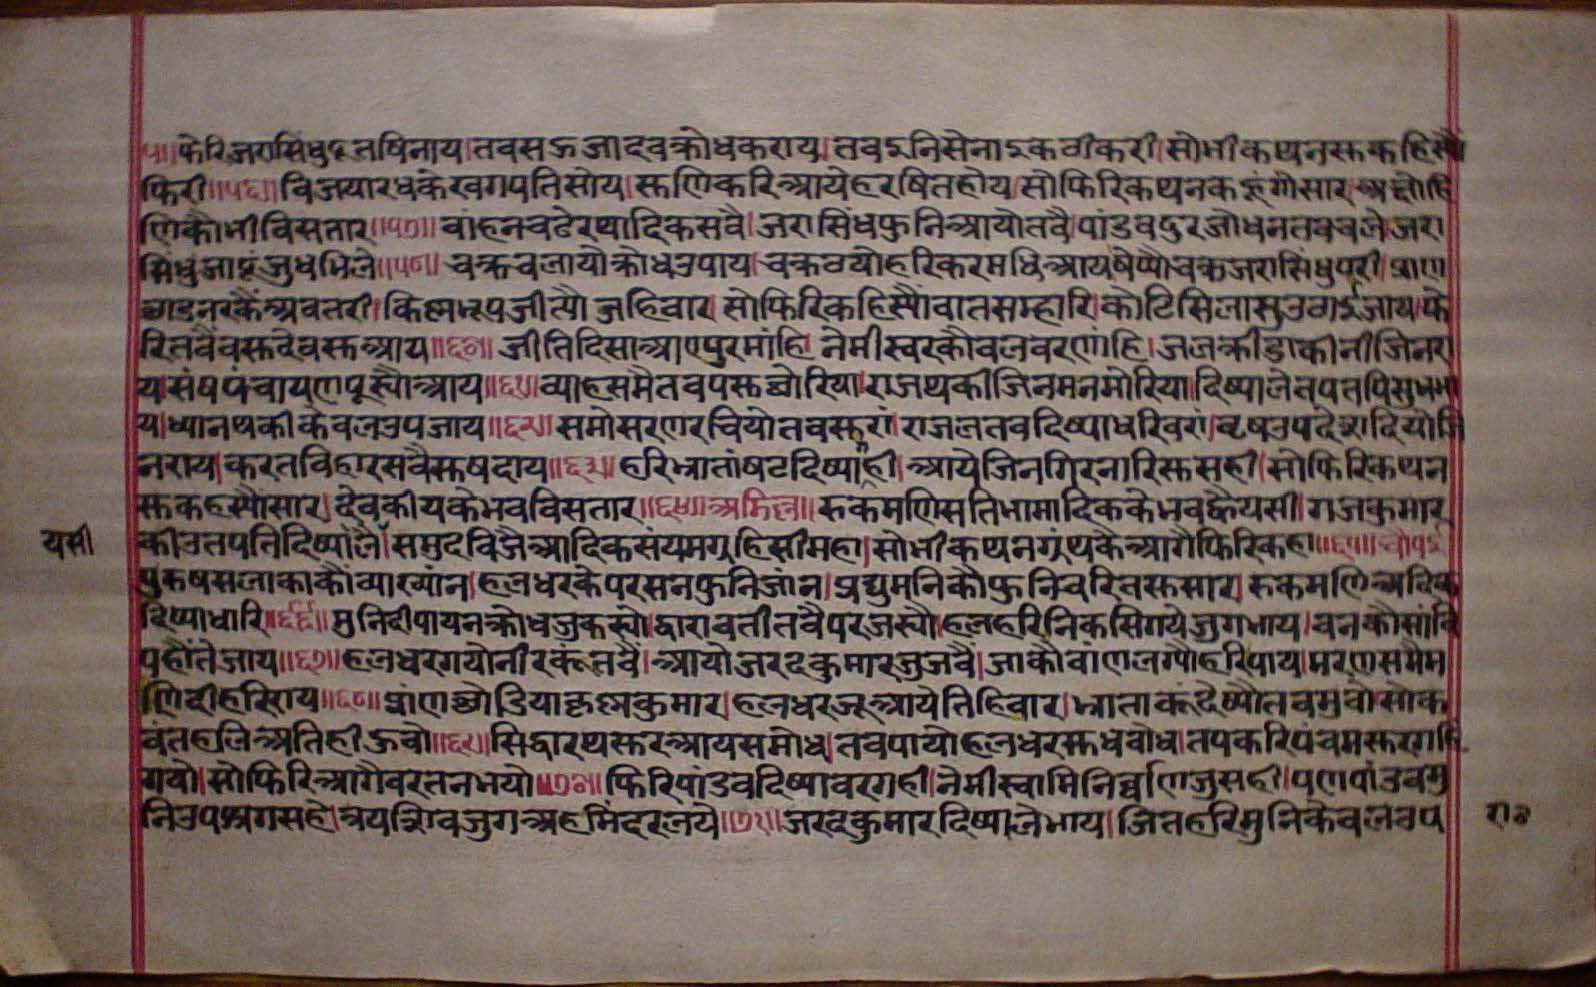 ५॥ फेरि जरासिंधु दूत षिनाय। तव सऊ जादव क्रोध कराय। तव इनि सेना इकठी करी। सो भी कथन सु कहिस्यौं
फिरी॥५६॥ विजयारध के खगपति सोय। सुणि करि आये हरषित होय। सो फिरि कथन कहूंगो सार। अछोहि
णि कौ भी विसतार॥५७॥ वांहन चढे रथादिक सवै। जरासिंध फुनि आयो तवै। पांडव दुरजोधन तव चले। जरा
सिंधु जादूं जुध मिले॥५८॥ चक्र चलायो क्रोध उपाय। चक्र वयौ हरि कर मधि आय। षेप्यौ चक्र जरासिंधु परी। प्राण
छाड नरकैं अवतरी। किश्न भूप जीत्यौ जहि वार। सो फिरि कहिस्यौं वात समहारि। कोटिसिला सु उठाई जाय। फे
रि तवै वसुदेव सु आय॥६०॥ जीति दिसा आए पुर मांहि। नेमीस्वर कौ वल वरणांहि। जलक्रीडा कीनी जिनरा
य। संष पंचायण पूर्यौ आय॥६१॥ व्याह समै तव पसु छोरिया। राजथकी जिन मन मोरिया। दिष्या ले तप तपि सुभ भा
य। ध्यान थकी केवल उपजाय॥६२॥ समोसरण रचियो तव सुरां। राजल तव दिष्या धरि वरां। वृष उपदेश दियो जि
नराय। करत विहार सवै सुषदाय॥६३॥ हरि भ्रातां षट दिष्या ही। आये जिन गिरनारि सु सही। सो फिरि कथन
सु कहस्यौ सार। देवकीय के भव विसतार॥६४॥ अडिल्ल॥ रुकमणि सतिभामादिक के भव ह्वैयसी। गजकुमार
की उतपति दिष्या लैयसी। समुद विजै आदिक संयम ग्रहिसी महा। सो भी कथन ग्रंथ कै आगै फिरि कहा॥६५॥ चौपई
पुरुष सलाका कौ व्याख्यांन। हलधर के परसन फुनि जांन। प्रद्युमनि कौ फुनि चरित सु सार। रुकमणि आदिक
दिष्या धारि॥६६॥ मुनि दीपायन क्रोध जु कर्यो। द्वारावती तवै परजर्यो। हल हरि निकसि गये जुग भाय। वन कौसांवि
पहौंते जाय॥६७॥ हलधर गयो नीर कूं तवै। आयो जरदकुमार जु जवै। जाकौ वांण लग्यौ हरि पाय। मरण समै म
णि दी हरिराय॥६८॥ प्रांण छोडिया कृश्नकुमार। हलधर जू आये तिहि वार। भ्राता कूं देष्यौ तव मुवो। सोक
वंत हलि अति ही ऊवो॥६९॥ सिद्वारथ सुर आय समोध। तव पायो हलधर सुध वोध। तप करि पंचम सुरगति
गयो। सो फिरि आगै वरतन भयो॥७०॥ फिरि पांडव दिष्या वर गही। नेमीस्वामि निर्व्वाणि जु सही। पण पांडव मु
नि उपश्रग सहे। त्रय शिव जुग अहमिंदर लये॥७१॥ जरदकुमार दिष्या ले भाय। जित हरि मुनि केवल उप
रा०